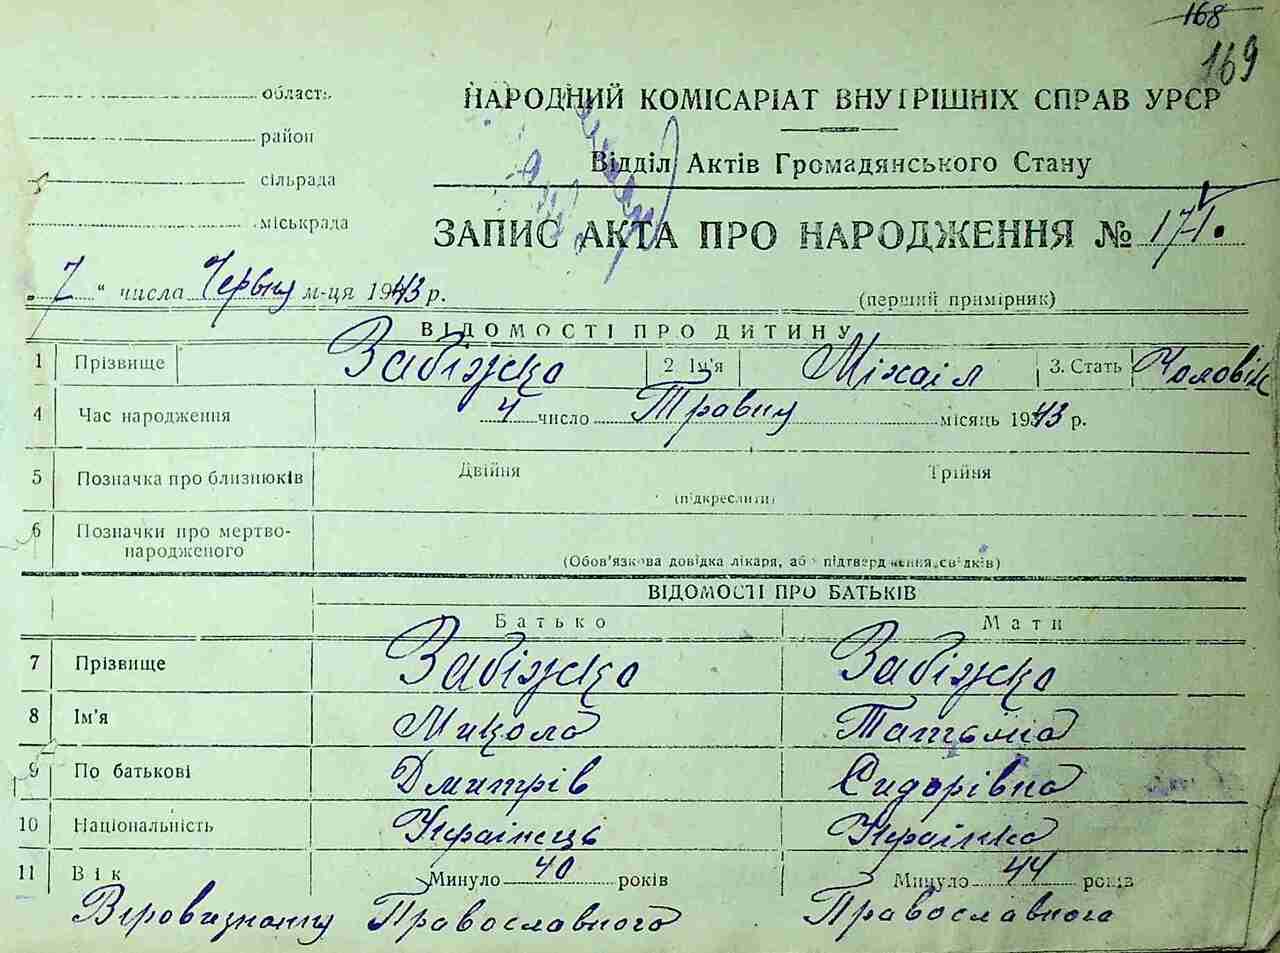 168
169
область
район
сільрада
міськрада
НАРОДНИЙ КОМІСАРІАТ ВНУТРІШНІХ СПРАВ УРСР
Відділ Актів Громадянського Стану
ЗАПИС АКТА ПРО НАРОДЖЕННЯ № 171.
„ 7 " числа Червня м-ця 1943 р.
(перший примірник)
ВІДОМОСТІ ПРО ДИТИНУ
1 Прізвище Забіжко 2 Ім'я Міхаіл 3. Стать Чоловік
4 Час народження 4 число Травня місяць 1943 р.
5 Позначка про близнюків Двійня Трійня
(підкреслити)
6 Позначки про мертво-
народженого
(Обов'язкова довідка лікаря, або підтвердження свідків)
ВІДОМОСТІ ПРО БАТЬКІВ
Батько Мати
7 Прізвище Забіжко Забіжко
8 Ім'я Микола Татьяна
9 По батькові Дмитрів Сидорівна
10 Національність Украінець Украінка
11 Вік Минуло 40 років Минуло 44 років
Віровизнання Православного Православного